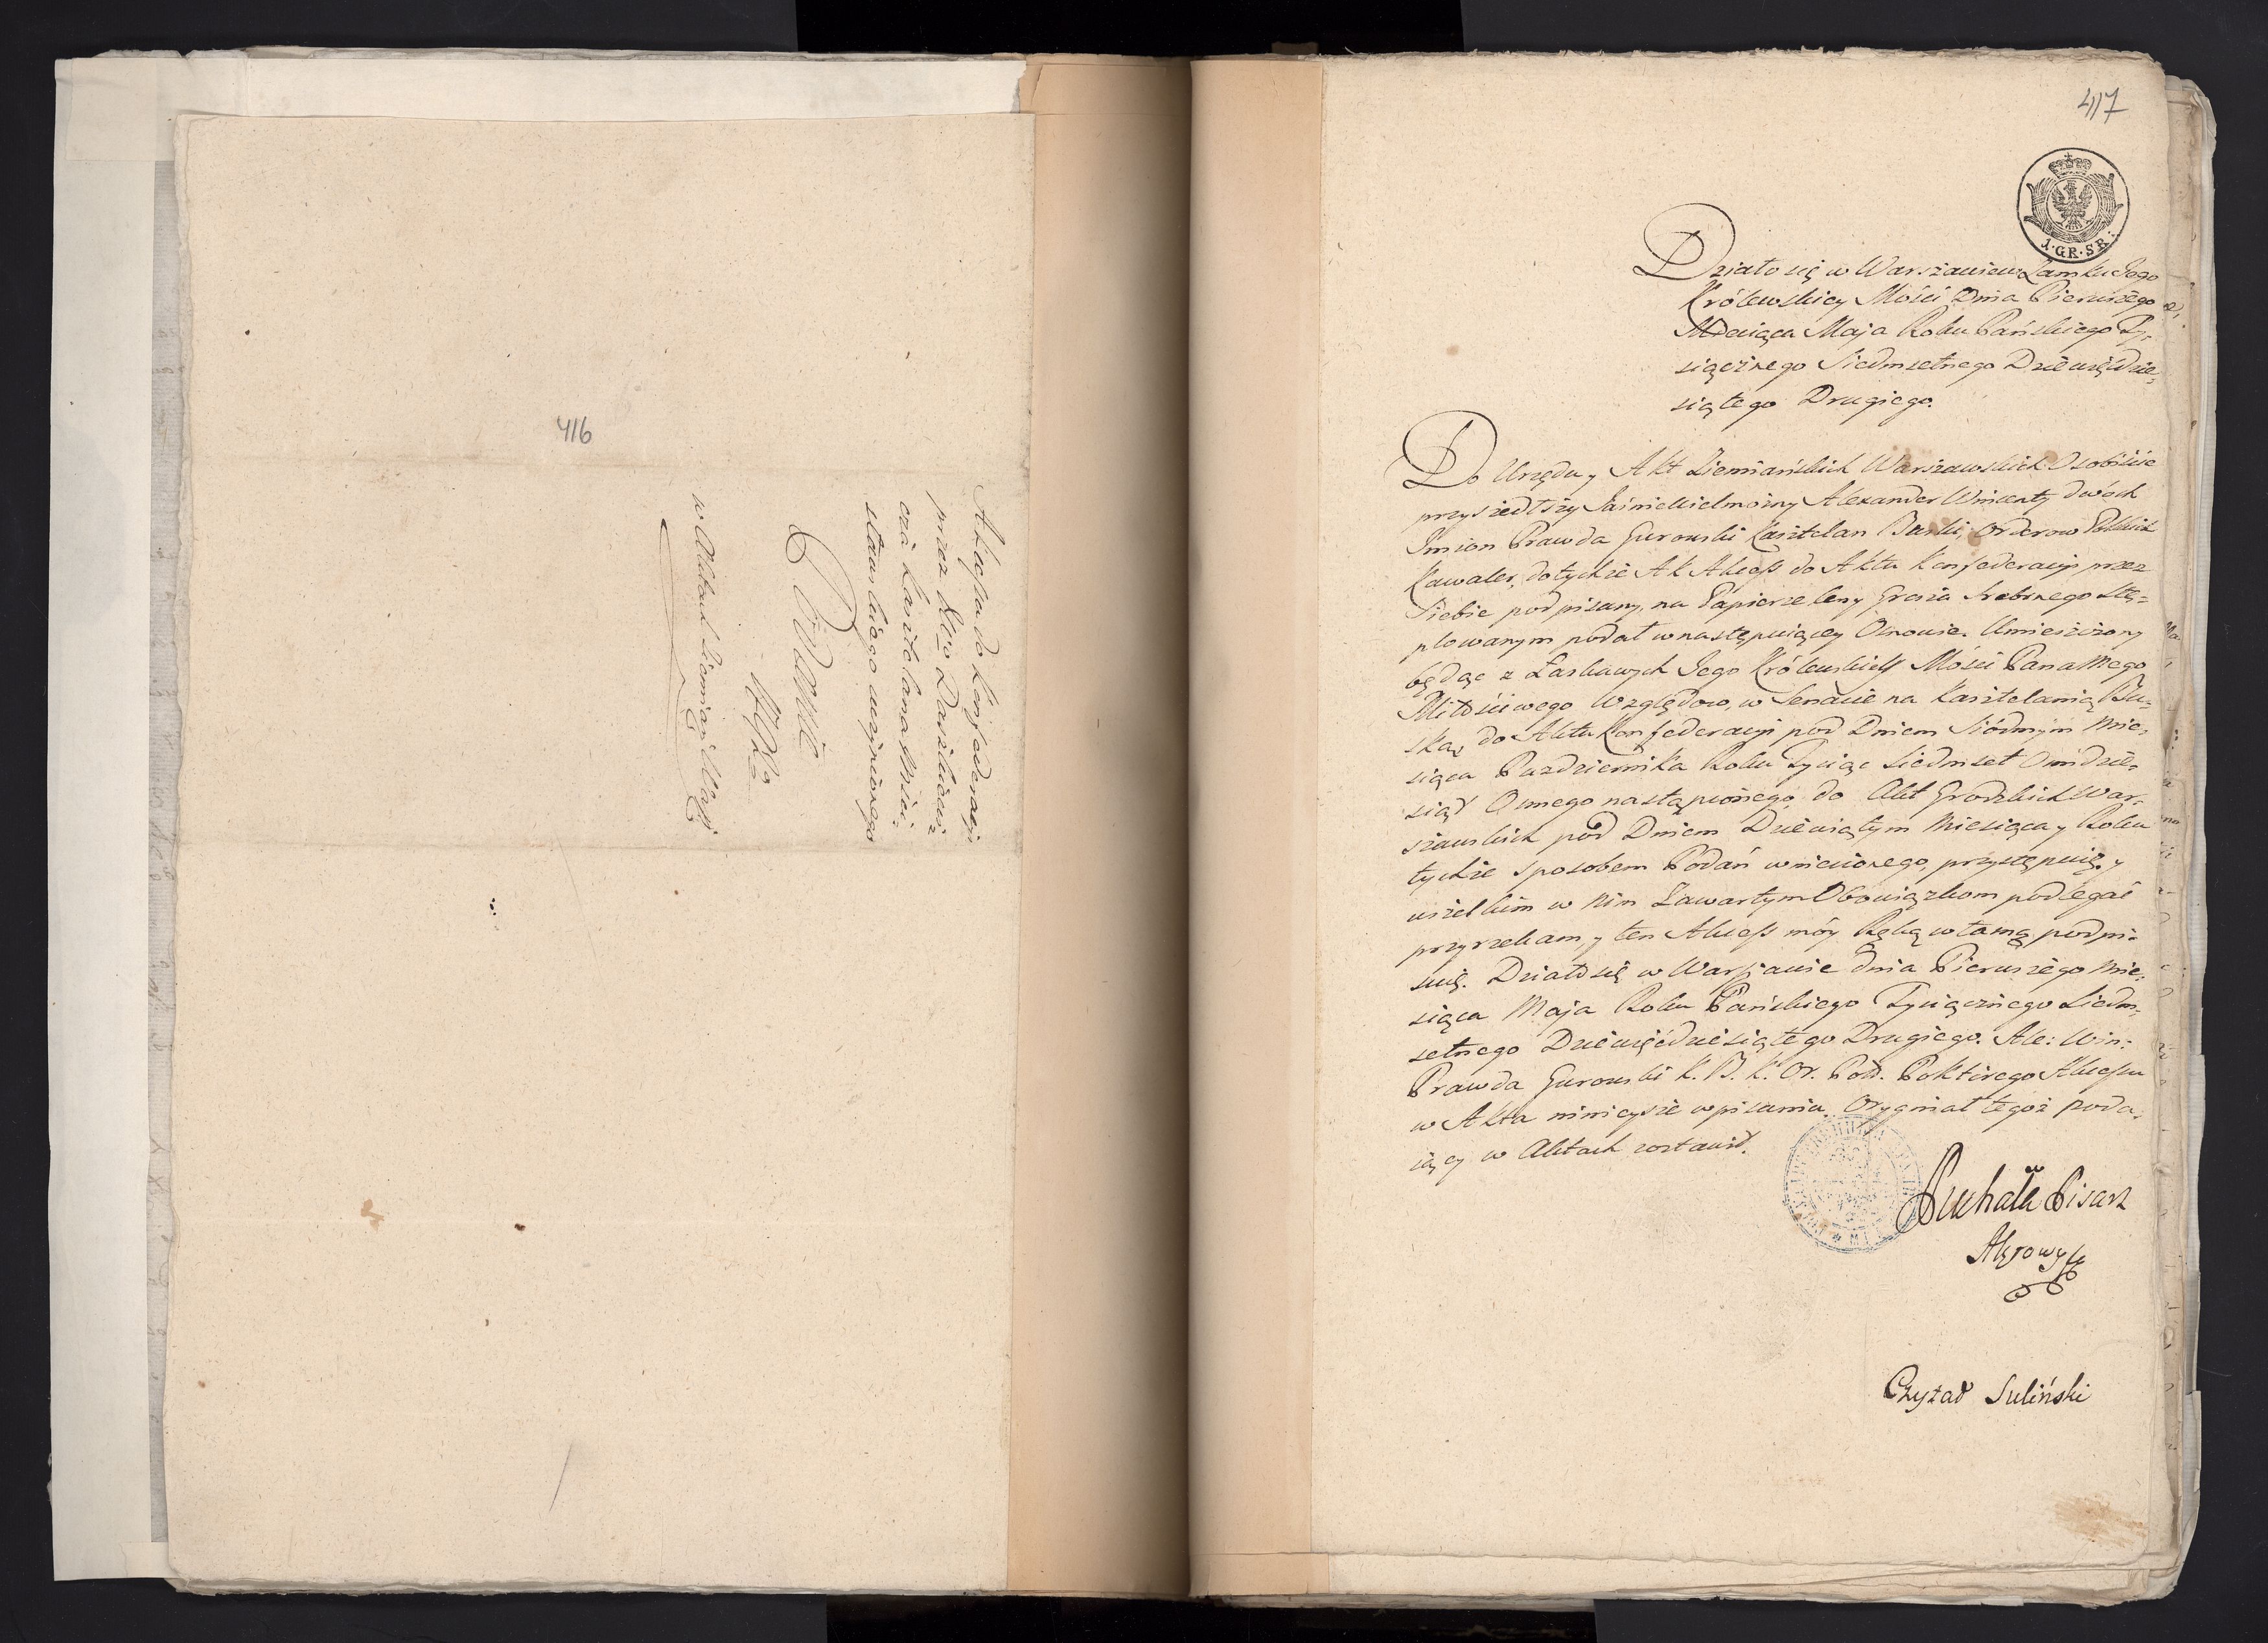 416
Akcessa do Konfederacji
przez
cza Kasztelana Msci-
sławskiego uczynionego
w Aktach Ziemiań: Wars:
417
1.GR.SR:
Działo się w Warszawie w Zamku Jego
Królewskiey Mości Dnia Pierwszego
Miesiąca Maja Roku Pańskiego Ty-
siącznego Siedmsetnego Dziewięćdzie-
siątego Drugiego.
Do Urzędu y Akt Ziemiańskich Warszawskich Osobiście
przyszedłszy Jaśnie Wielmożny Alexander Wincenty dwóch
Imion Prawda Gurowski Kasztelan Buski, Orderow Polskich
Kawaler, do tychże Akt Akcess do Aktu Konfederacyi przez
Siebie podpisany, na Papierze ceny Grosza Srebrnego Stę-
plowanym podał w następuiącey Osnowie. Umieszczony
będąc z Łaskawych Jego Królewskiey Mości Pana Mego
Miłościwego Względow, w Senacie na Kasztelanią Bu-
ską, do Aktu Konfederacyi pod Dniem Siódmym Mie-
siąca Pazdziernika Roku Tysiąc Siedmset Osmdzie-
siąt Osmego nastąpionego, do Akt Grodzkich War-
szawskich pod Dniem Dziewiątym Miesiąca y Roku
tychże sposobem Podań wniesionego, przystępuię, y
wszelkim w nim Zawartym Obowiązkom podlegać
przyrzekam, y ten Akcess móy Ręką własną podpi-
suię. Działo się w Warszawie dnia Pierwszego Mie-
siąca Maja Roku Pańskiego Tysiącznego Siedm-
setnego Dziewięćdziesiątego Drugiego. Ale: Win:
Prawda Gurowski K. B. K. Or. Pol. Po którego Akcessu
w Akta ninieysze wpisaniu. Oryginał tegoż poda-
iący w Aktach zostawił.
Suchała Pisarz
Aktowy
Czytał Suliński